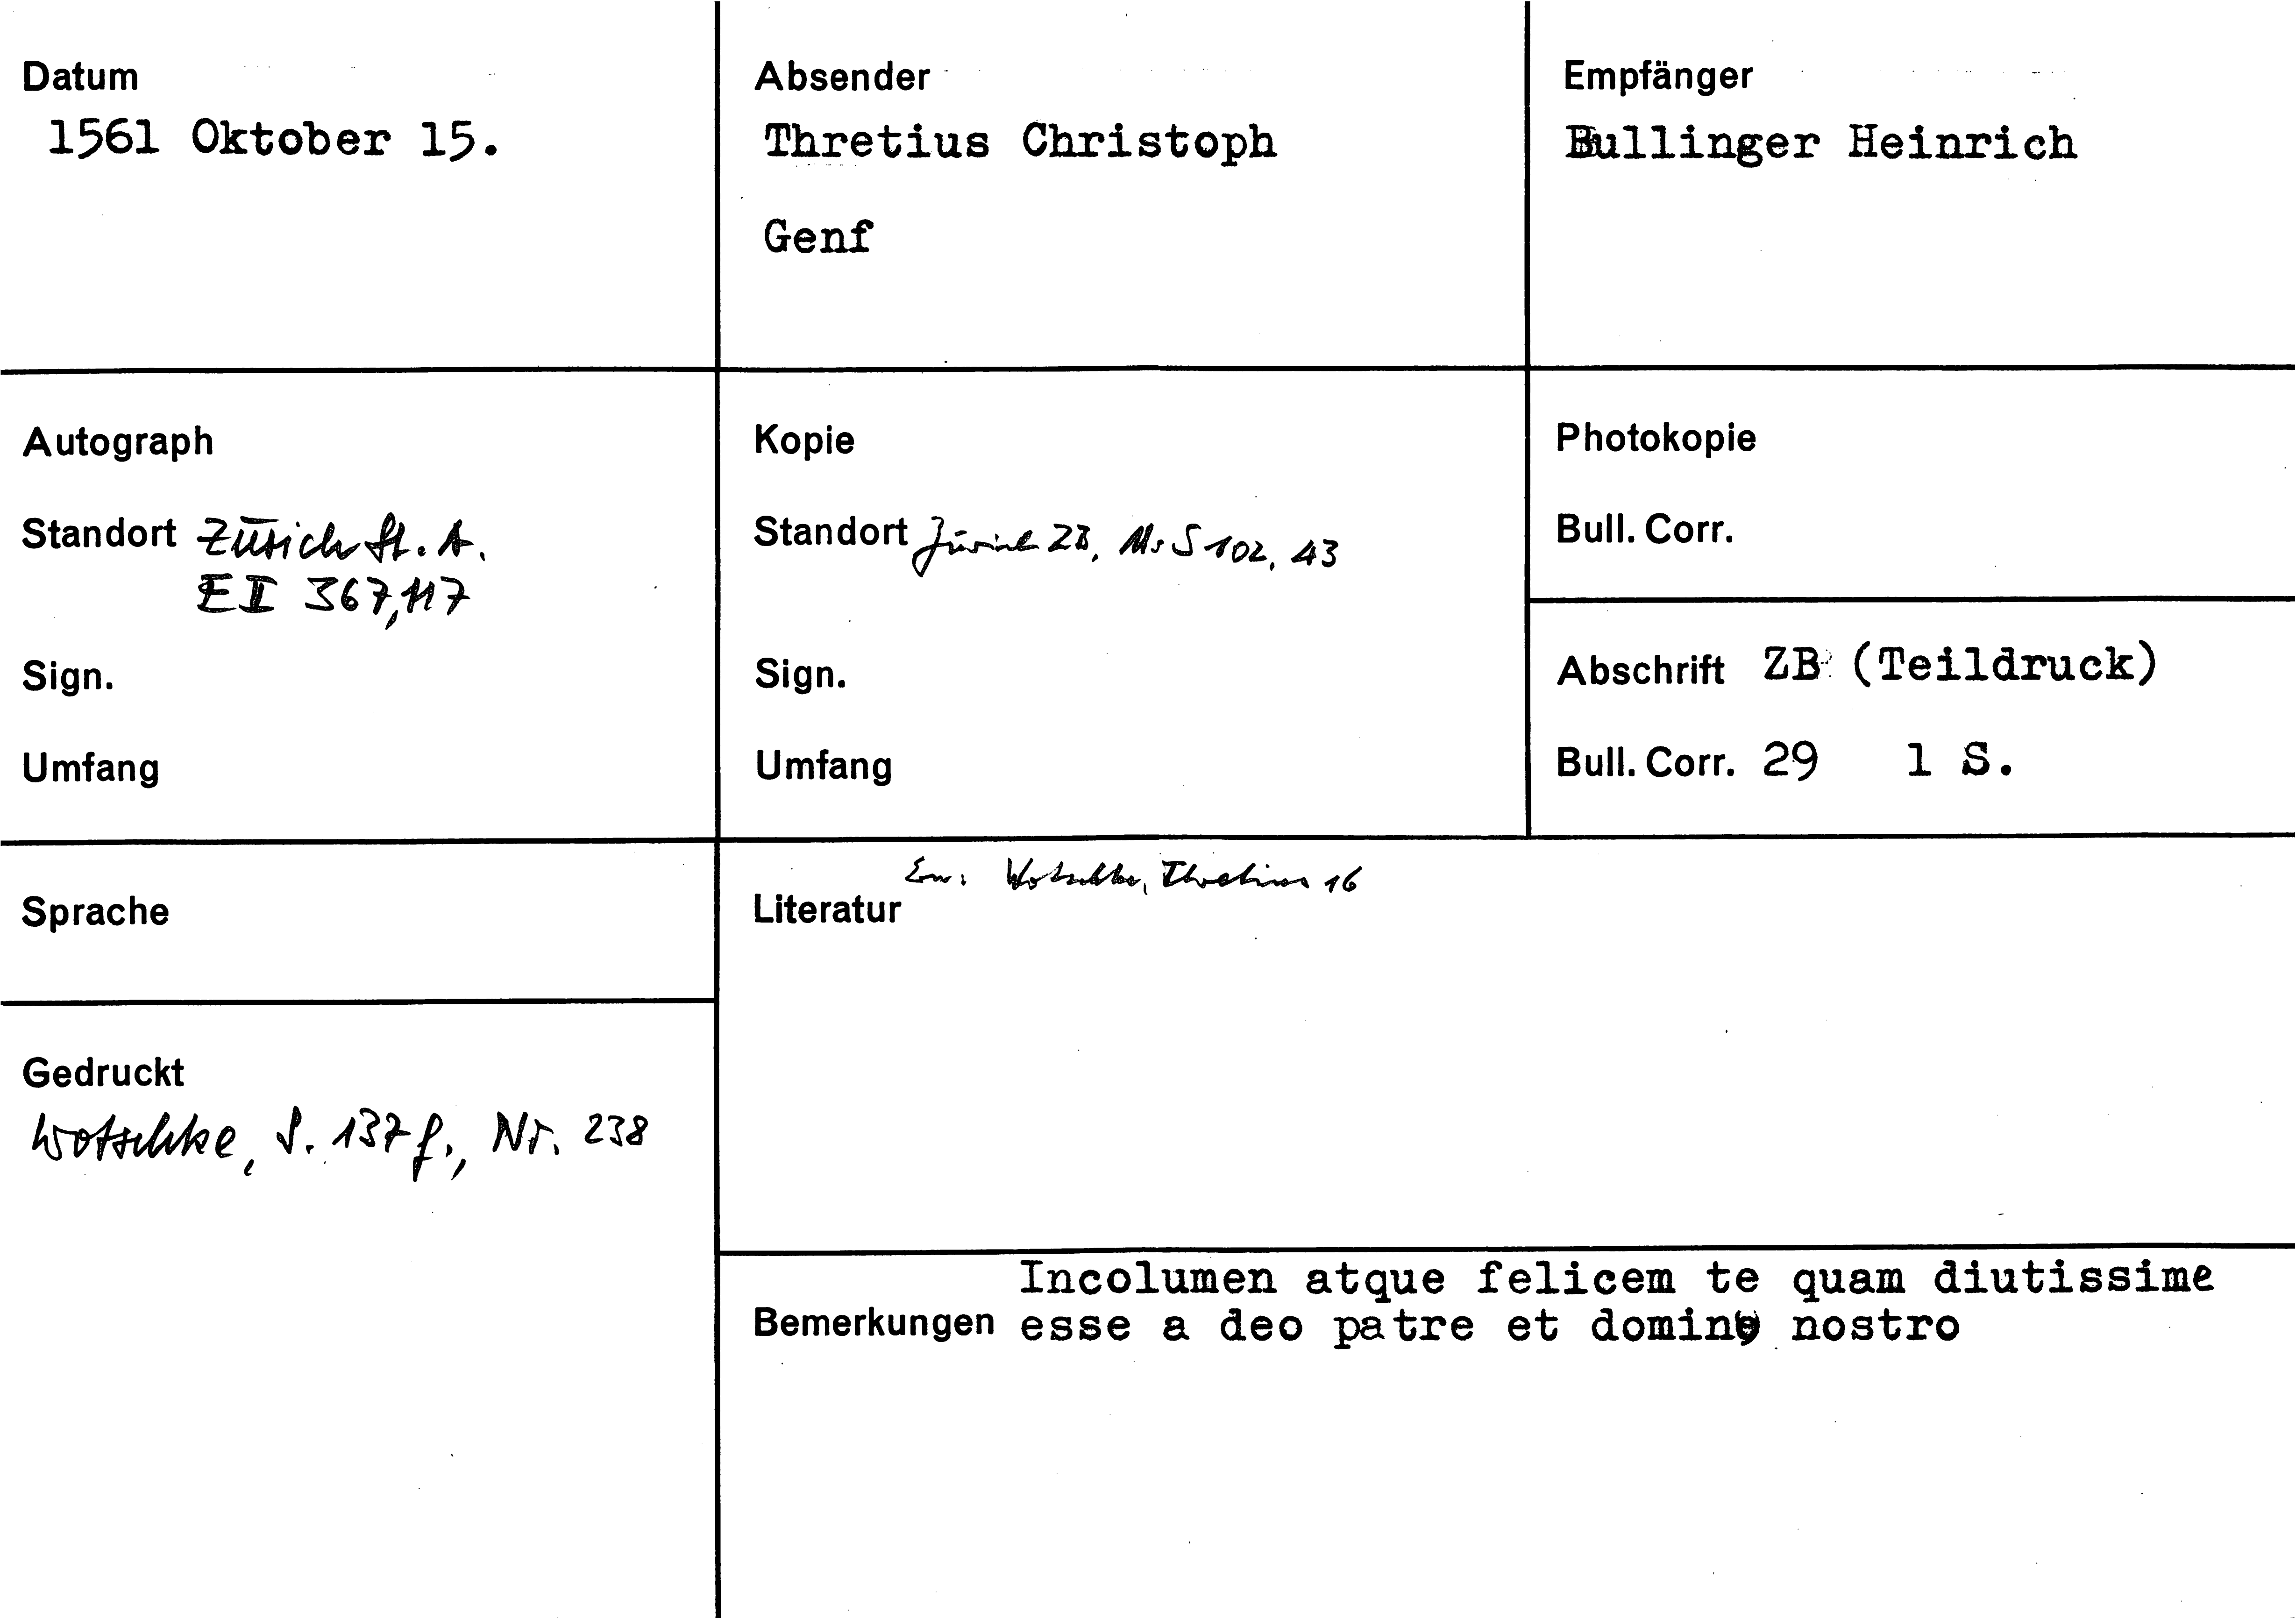 Datum
1561 Oktober 15.
Absender
Thretius Christoph
Genf
Empfänger
Bullinger Heinrich
Autograph
Standort Zürich St. A.
E II 367,117
Sign.
Umfang
Kopie
Standort Zürich ZB, Ms S 102, 43
Sign.
Umfang
Photokopie
Bull. Corr.
Abschrift ZB (Teildruck)
Bull. Corr. 29 1 S.
Sprache
Gedruckt
Wotschke, S. 137 f., Nr. 238
Wotschke, Thretius 16
Literatur
Incolumen atque felicem te quam diutissime
Bemerkungen esse a deo patre et domino nostro